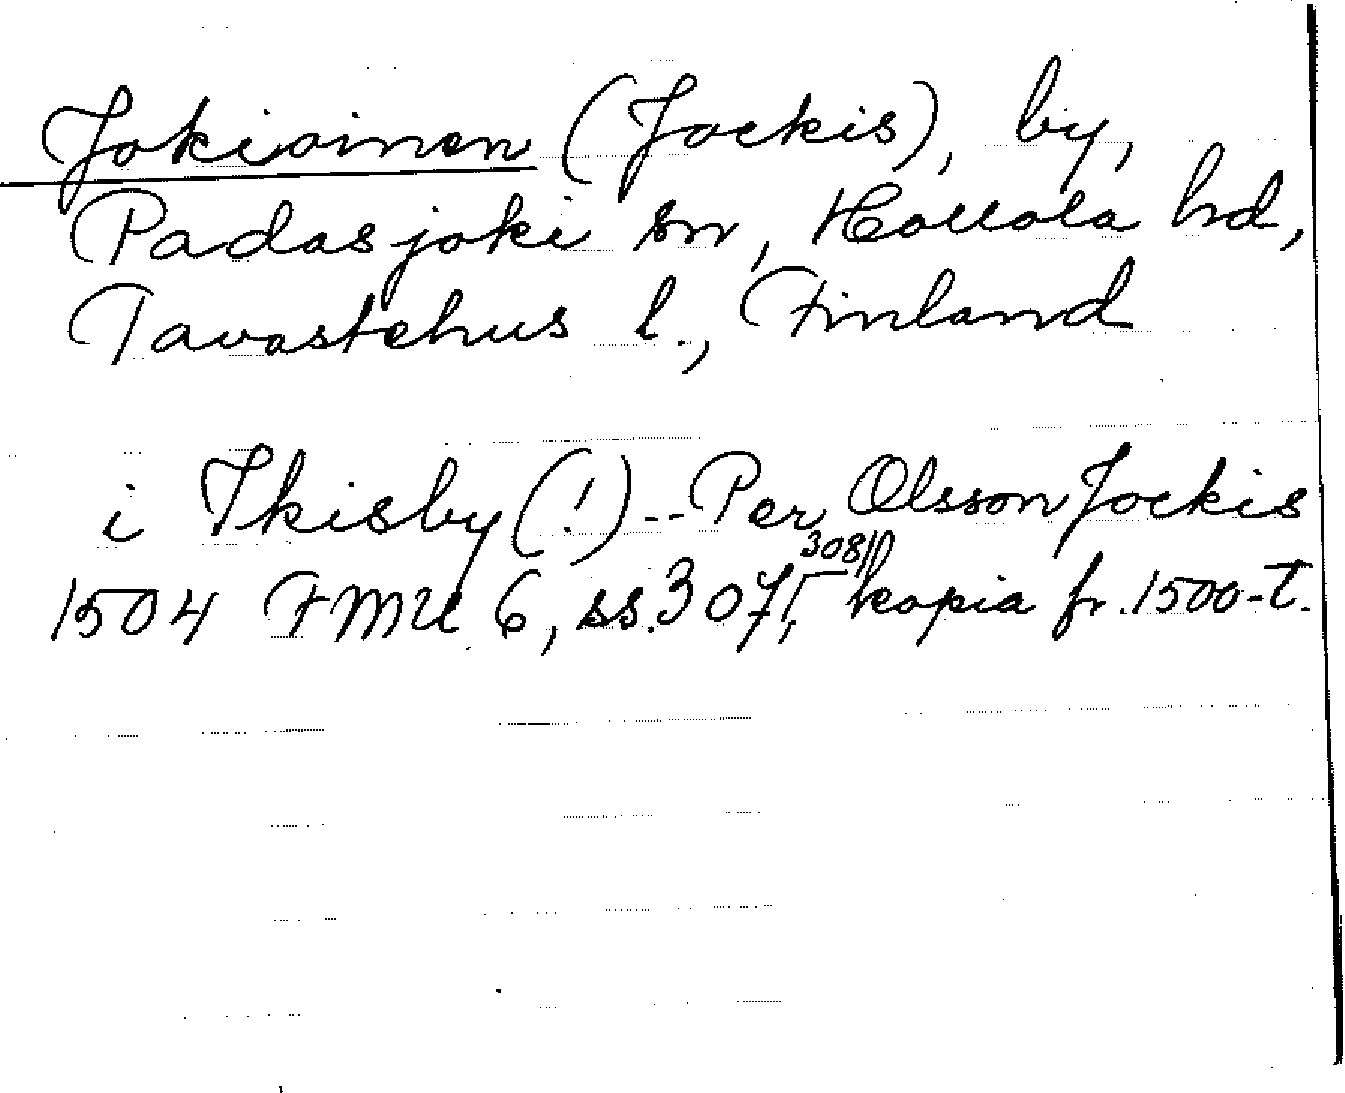 Jokioinen (Jockis), by,
Padasjoki sn, Hollola hd,
Tavastehus l., Finland
i Ikisby (!) -- Per Olsson Jockis
1504 FMU 6, ss. 307, 308, kopia fr. 1500-t.